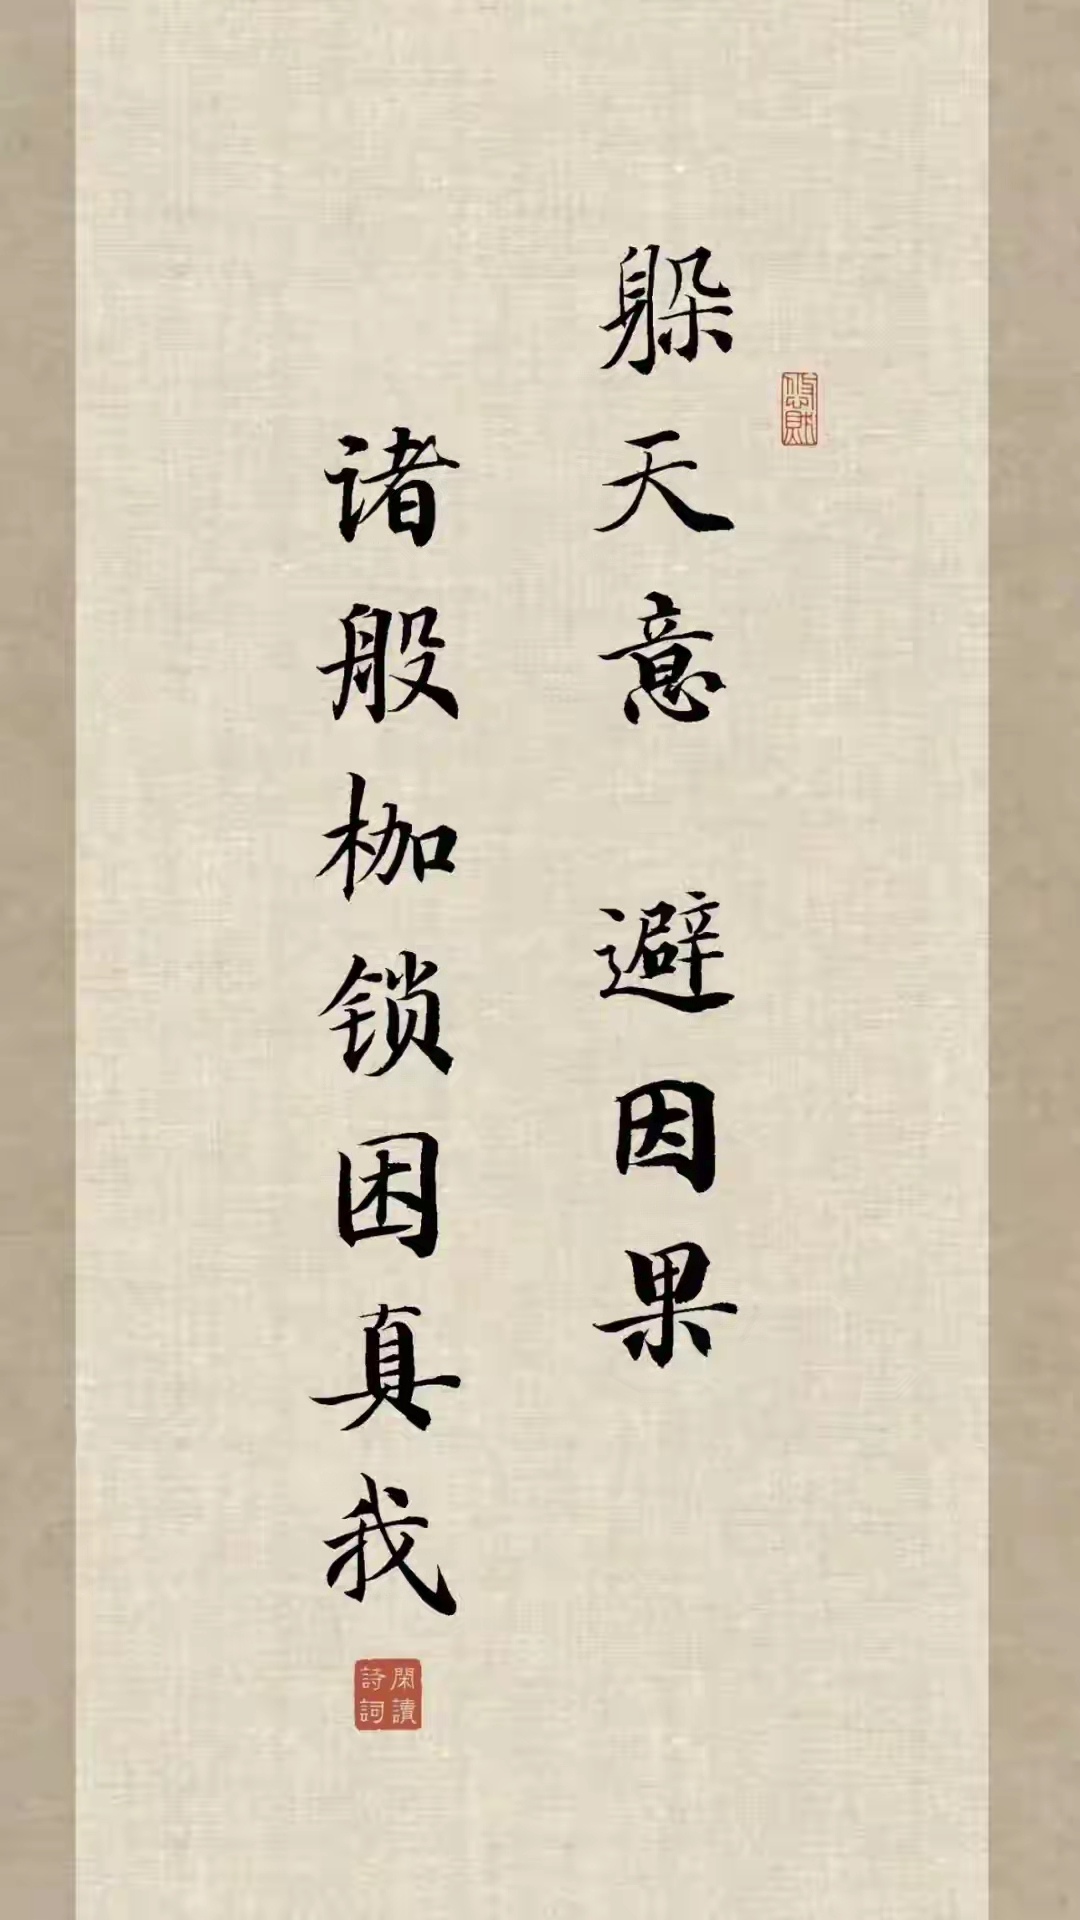 躲天意 避因果
诸般枷锁困真我
閑讀
詩詞